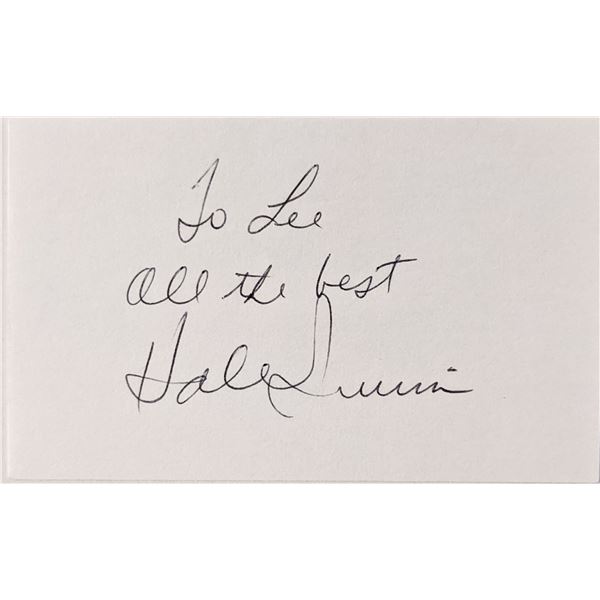 To Lee
All the best
Hale Irwin